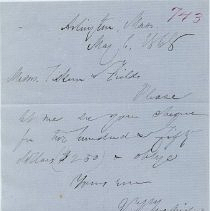 743
Arlington, Mass.
May 6, 1868
Messrs. Ticknor & Fields
Please
let me have your cheque
for two hundred & fifty
dollars ($250) & oblige
Yours truly